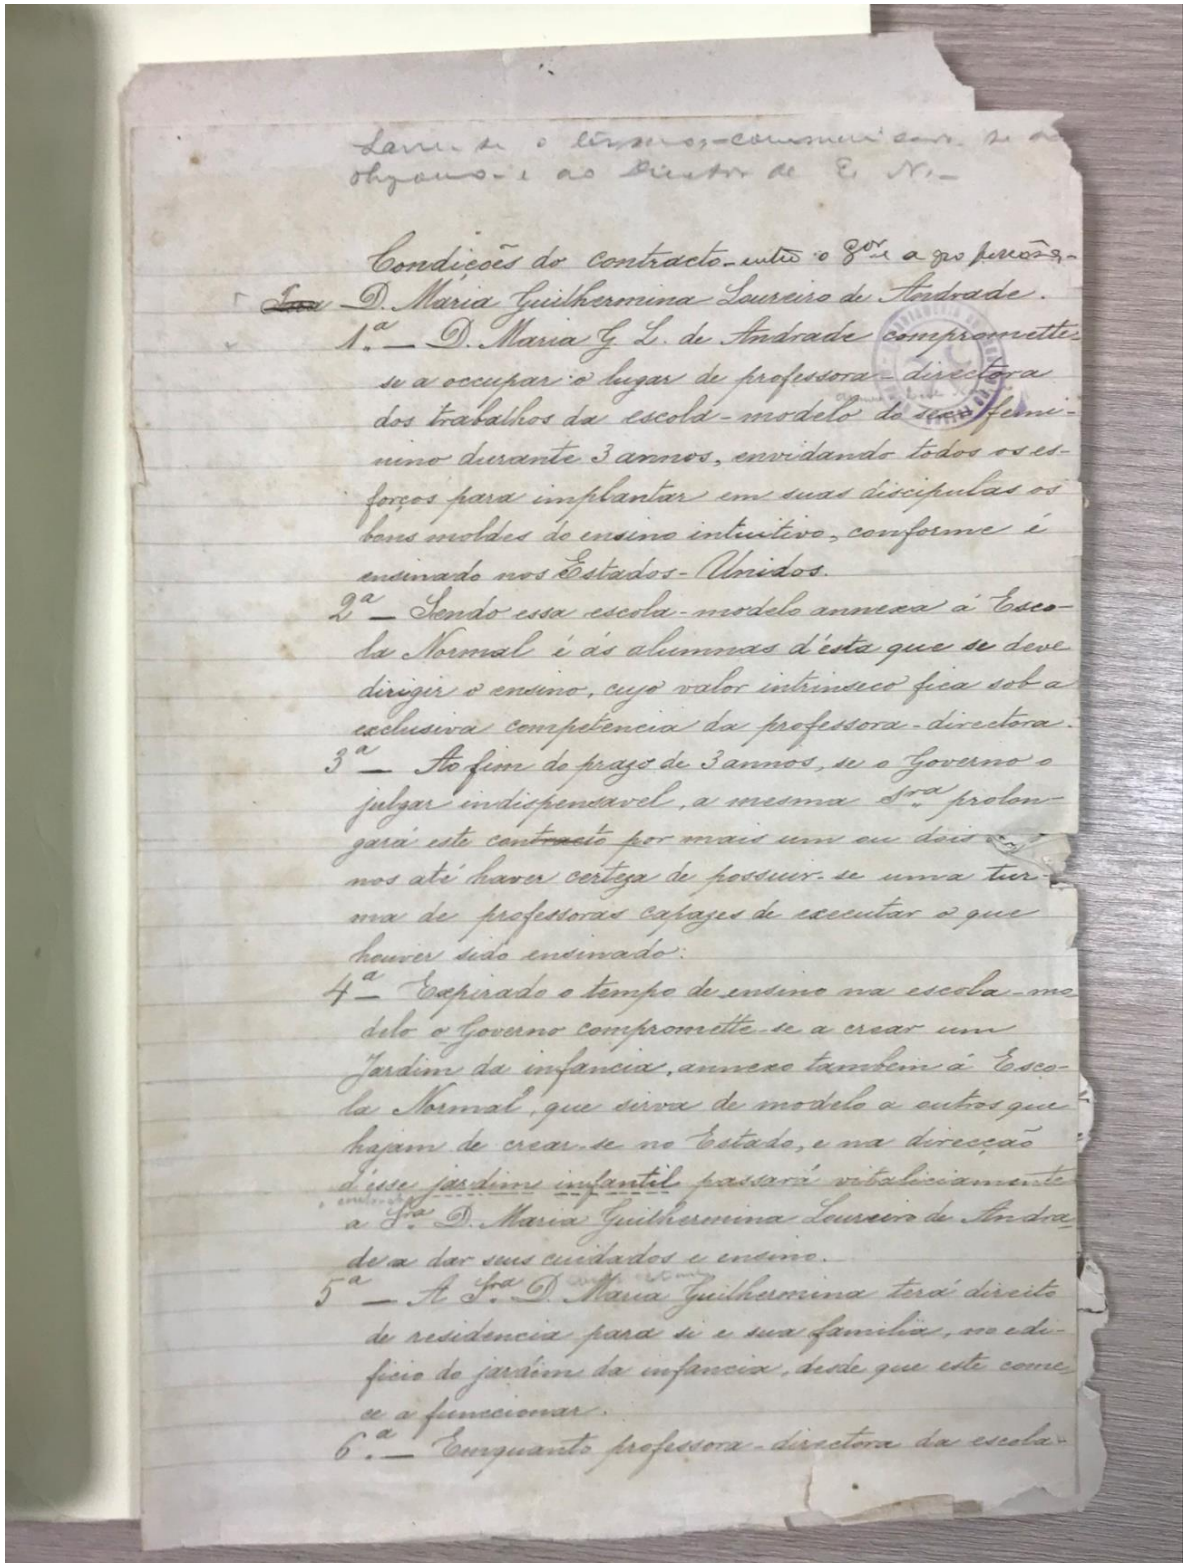 Lavre-se o termo, communicando-se a
ao Director da E. N.
Condições do contracto entre o Gor. e a
D. Maria Guilhermina Loureiro de Andrade.
1.ª — D. Maria G. L. de Andrade compromette-
se a occupar o lugar de professora-directora
dos trabalhos da escola-modelo do sexo femi-
nino durante 3 annos, envidando todos os es-
forços para implantar em suas discipulas os
bons moldes do ensino intuitivo, conforme é
ensinado nos Estados-Unidos.
2ª — Sendo essa escola-modelo annexa á Esco-
la Normal é ás alumnas d'ésta que se deve
dirigir o ensino, cujo valor intrinseco fica sob a
exclusiva competencia da professora-directora.
3ª — Ao fim do prazo de 3 annos, se o Governo o
julgar indispensavel, a mesma Sra. prolon-
gará este contracto por mais um ou dois an-
nos até haver certeza de possuir-se uma tur-
ma de professoras capazes de executar o que
houver sido ensinado.
4ª — Expirado o tempo de ensino na escola-mo
delo o Governo compromette-se a crear um
Jardim da infancia, annexo tambem á Esco-
la Normal, que sirva de modelo a outros que
hajam de crear-se no Estado, e na direcção
d'ésse jardim infantil passará vitaliciamente
a Sra. D. Maria Guilhermina Loureiro de Andra-
de a dar seus cuidados e ensino.
5ª — A Sra. D. Maria Guilhermina terá direito
de residencia para si e sua familia, no edi-
ficio do jardim da infancia, desde que este come
ce a funccionar.
6.ª — Emquanto professora-directora da escola-